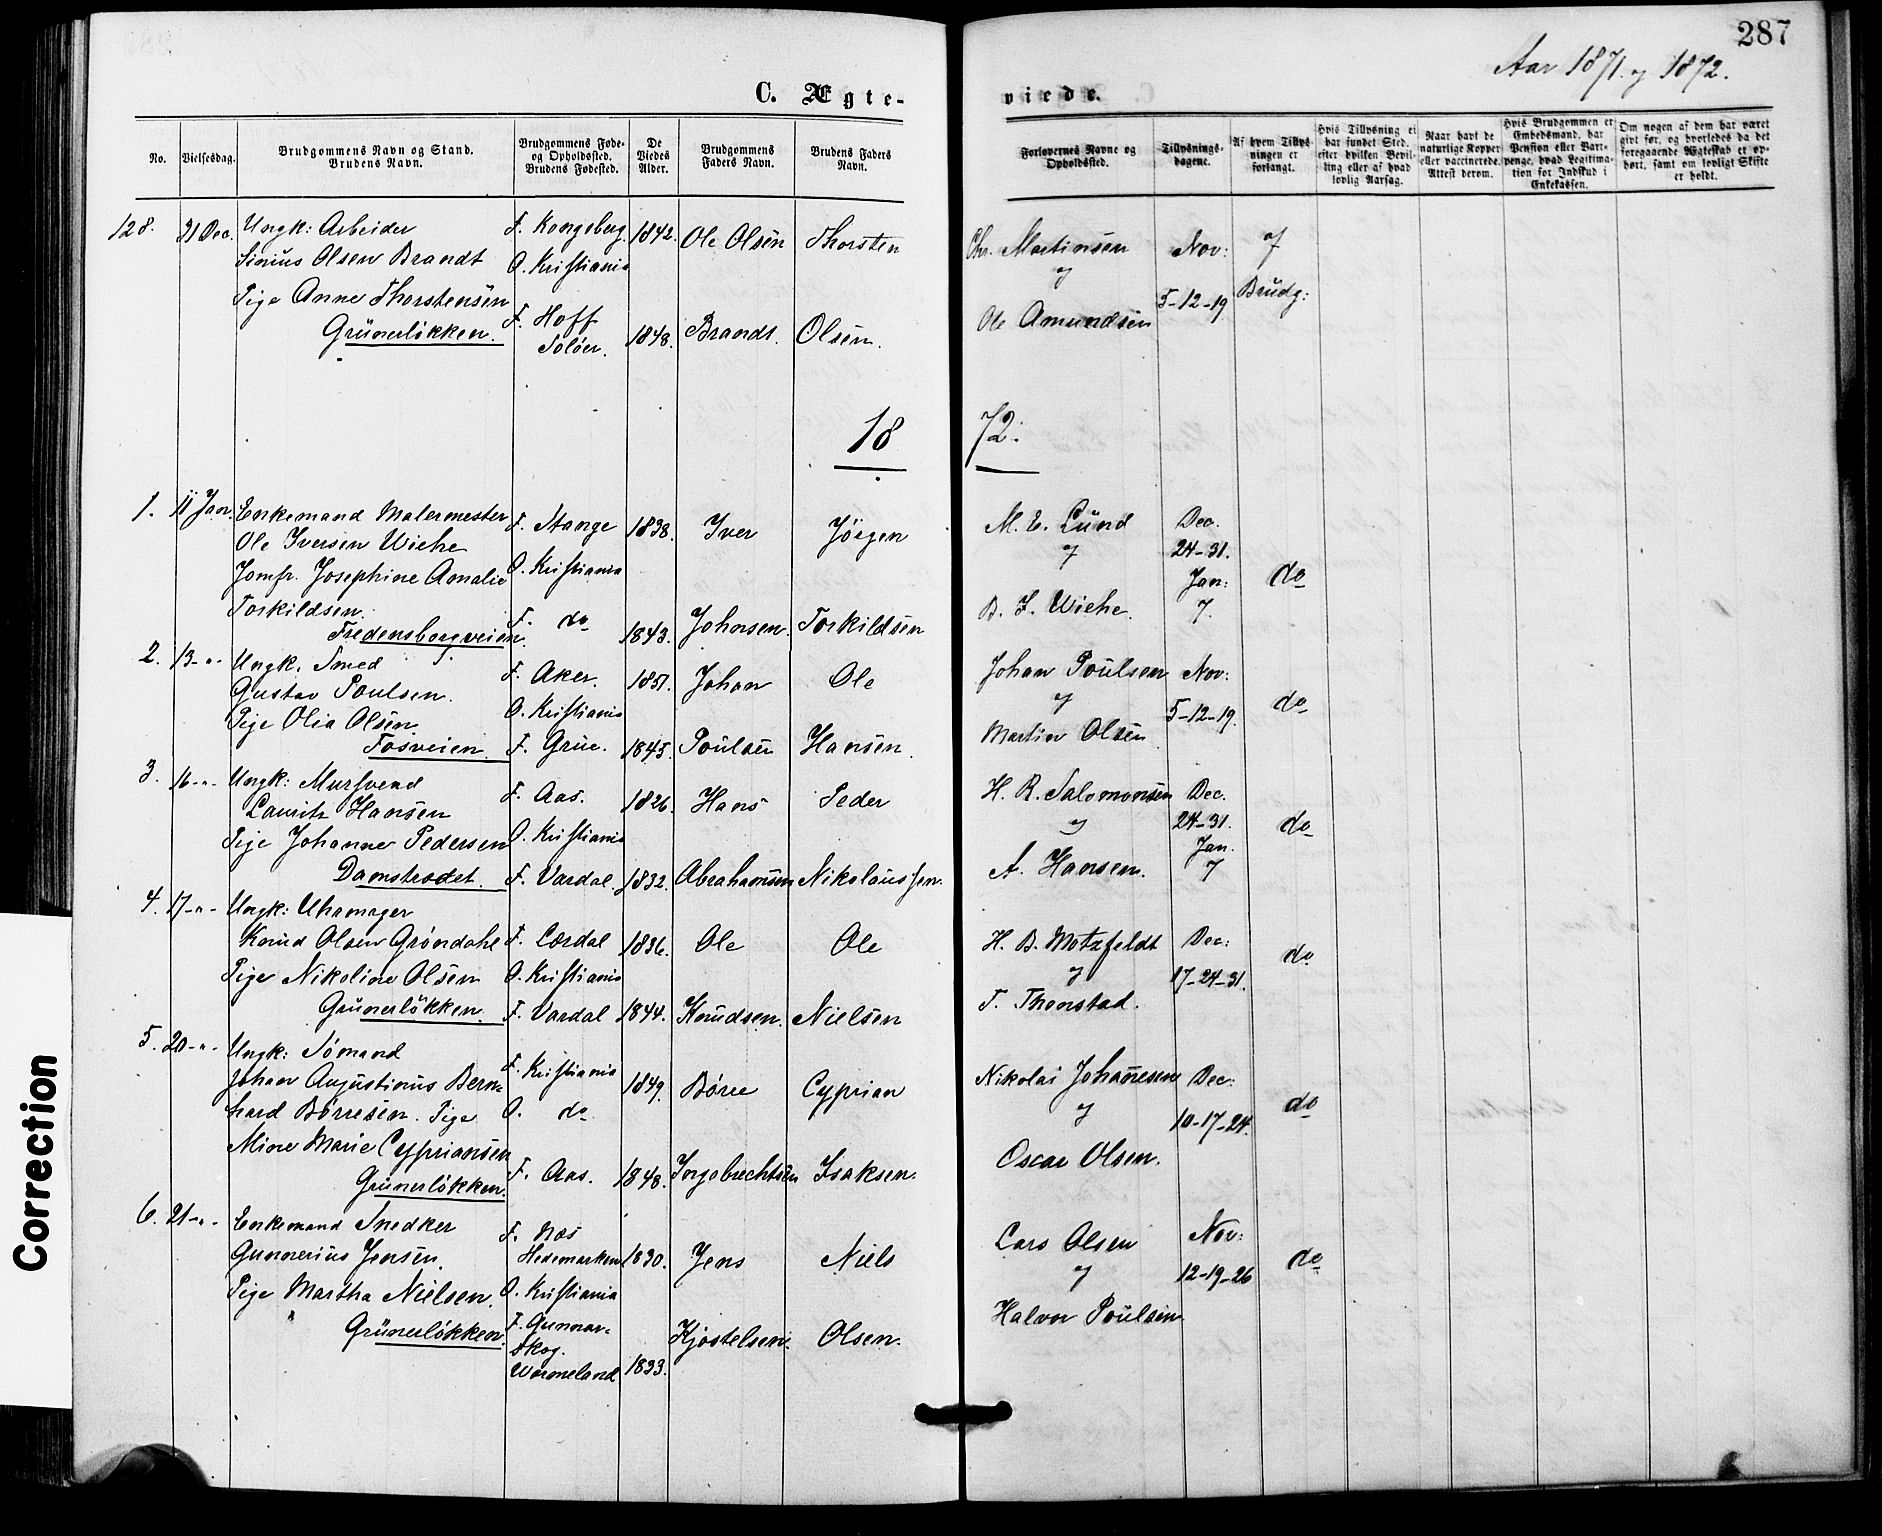 287
Aar 1871 og 1872.
C. Ægte-
viede.
No.
Vielsesdag.
Brudgommens Navn og Stand.
Brudens Navn.
Brudgommens Føde-
og Opholdssted.
Brudens Fødested.
De
Viedes
Alder.
Brudgommens
Faders Navn.
Brudens Faders
Navn.
Forlovernes Navne og
Opholdssted.
Tillysnings-
dagene.
Af hvem Tillys-
ningen er
forlangt.
Hvis Tillysning ei
har fundet Sted,
efter hvilken Bevil-
ling eller af hvad
lovlig Aarsag.
Naar havt de
naturlige Kopper
eller vaccinerede.
Attest derom.
Hvis Brudgommen er
Embedsmand, har
Pension eller Vart-
penge, hvad Legitima-
tion for Indskud i
Enkekassen.
Om nogen af dem har været
gift før, og hvorledes da det
foregaaende Ægteskab er op-
hørt, samt om lovligt Skifte
er holdt.
128. 31 Dec. Ungk: Arbeider F. Kongsberg 1842. Ole Olsen Thorsten Chr. Martinsen Nov: af
Sinius Olsen Brandt O. Kristiania og
Pige Anne Thorstensen F. Hoff 5-12-19 Brudg:
Grünerløkken. Soløer. 1848. Brandt. Olsen. Ole Amundsen
18 72.
1. 11 Jan. Enkemand Malermester F. Stange 1838. Iver Jörgen M. E. Lund Dec.
Ole Iversen Wiehe og 24-31.
Jomfr. Josephine Amalie O. Kristiania Jan: do
Torkildsen. F. do 1843. Johnsen. Torkildsen B. I. Wiehe. 7.
Fredensborgveien.
2. 13-"- Ungk. Smed F. Aker. 1851. Johan Ole Johan Poulsen Nov:
Gustav Poulsen. O. Kristiania og do
Pige Olia Olsen. 5-12-19.
Fosveien. F. Grue. 1845. Poulsen Hansen. Martin Olsen
3. 16-"- Ungk: Mursvend F. Aas. 1826. Hans Peder H. R. Salomonsen Dec.
Lauritz Hansen O. Kristiania og 24-31. do
Pige Johanne Pedersen Jan.
Damstrædet. F. Vardal. 1832. Abrahamsen Nikolaussen. A. Hansen. 7
4. 17-"- Ungk: Uhrmager
Knud Olsen Gröndahl F. Lærdal 1836. Ole Ole H. B. Motzfeldt Dec: do
Pige Nikoline Olsen O. Kristiania og 17-24-31.
Grünerløkken. F. Vardal 1844. Knudsen. Nielsen T. Thonstad.
5. 20-"- Ungk: Sömand F. Kristiania
Johan Augustinus Bern- 1849. Börre Cyprian Nikolai Johannesen Dec:
hard Börresen. Pige O. do og 10-17-24. do
Mine Marie Cypriansen
Grünerløkken. F. Aas. 1848. Ingebrechtsen Isaksen. Oscar Olsen.
6. 21-"- Enkemand Snedker F. Næs Nov:
Gunnerius Jensen. Hedemarken 1830. Jens Niels Lars Olsen do
Pige Martha Nielsen. O. Kristiania og 12-19-26
Grünerløkken. F. Gunnar- Kjostelsen. Olsen. Halvor Poulsen
skog.
Wærmeland 1833.
Correction